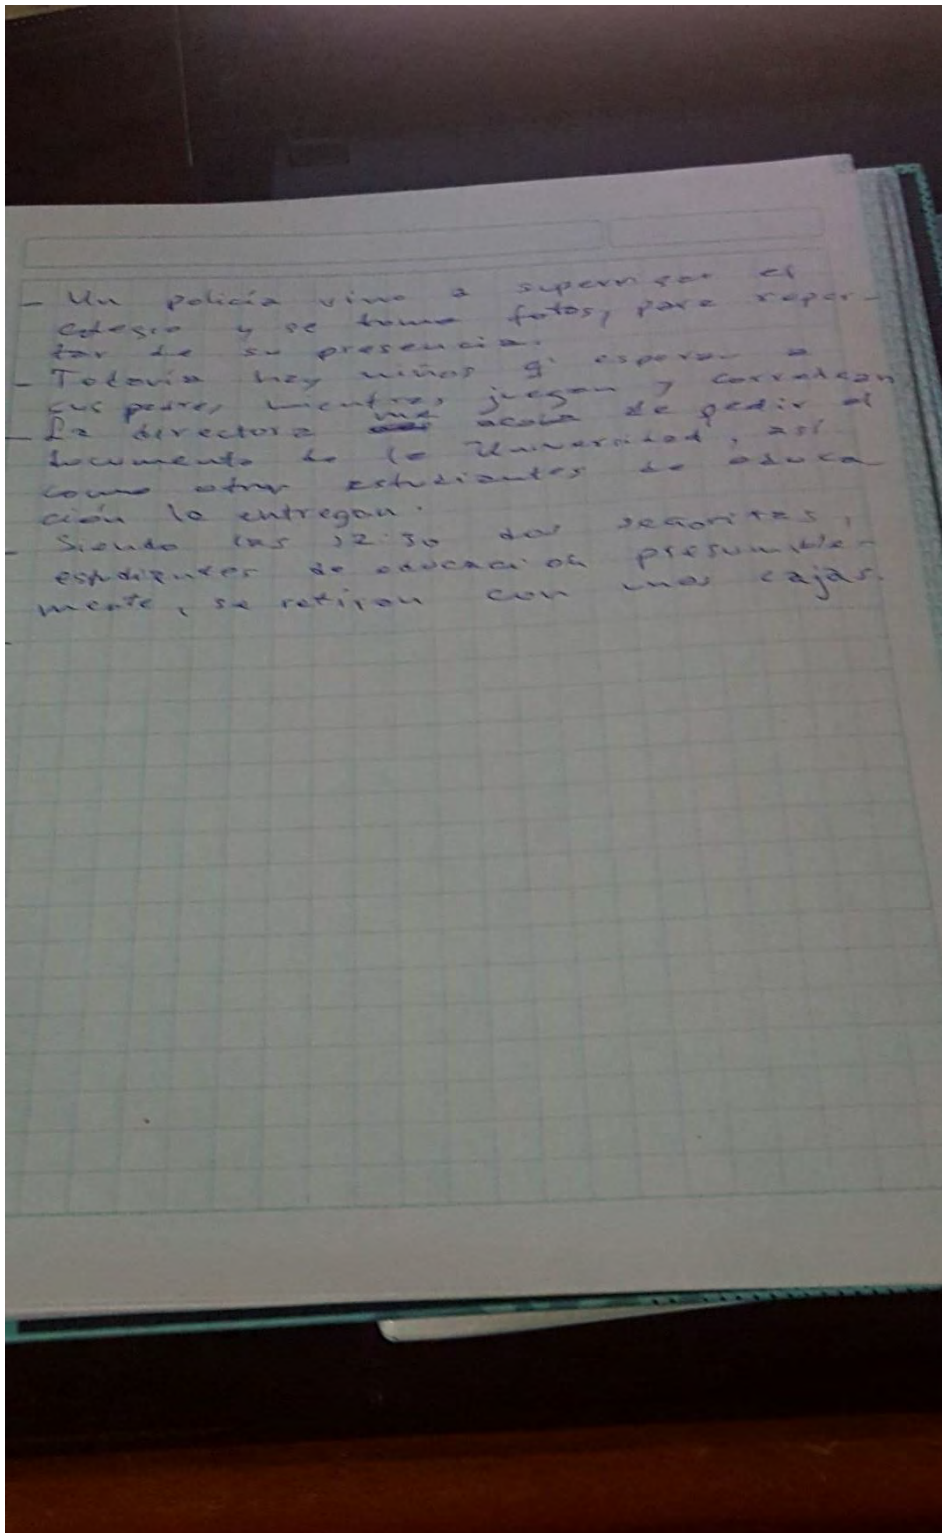 - Un policía vino a supervisar el
colegio y se tomo fotos, para repor-
tar de su presencia.
- Todavía hay niños q' esperan a
sus padres, mientras juegan y corretean
- La directora me acaba de pedir el
documento de la Universidad, así
como otras estudiantes de educa
ción le entregan.
- Siendo las 12:30 dos señoritas,
estudiantes de educación presumible-
mente, se retiran con unas cajas.
-